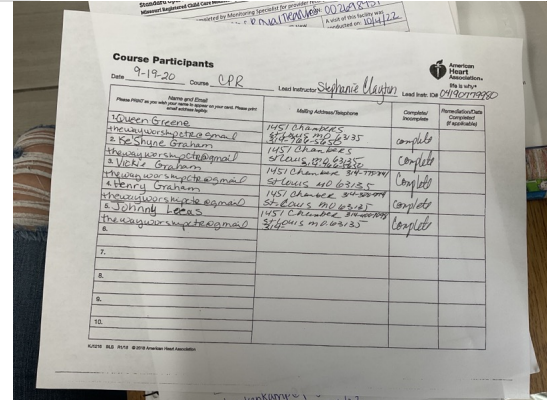 Missouri Registered Child Care
completed by Monitoring Specialist for provider
A visit of this facility was
conducted on: 10/4/22
Course Participants
American
Heart
Association®
life is why®
Date 9-19-20 Course CPR Lead Instructor Stephanie Clayton Lead Instr. ID#
Please PRINT as you wish your name to appear on your card. Please print
email address legibly.
Name and Email
Mailing Address/Telephone
Complete/
Incomplete
Remediation/Date
Completed
(if applicable)
1. Queen Greene
thewayworshipctr@gmail
1451 Chambers
St Louis mo 63135
complete
2. KeShyne Graham
thewayworshipctr@gmail
1451 Chambers
St Louis, mo 63135
Complete
3. Vickie Graham
thewayworshipctr@gmail
1451 Chamber
St Louis mo 63135
Complete
4. Henry Graham
thewayworshipctr@gmail
1451 Chamber
St. Louis mo 63135
Complete
5. Johnny Lucas
thewayworshipctr@gmail
1451 Chamber
St Louis mo. 63135
Complete
6.
7.
8.
9.
10.
American Heart Association